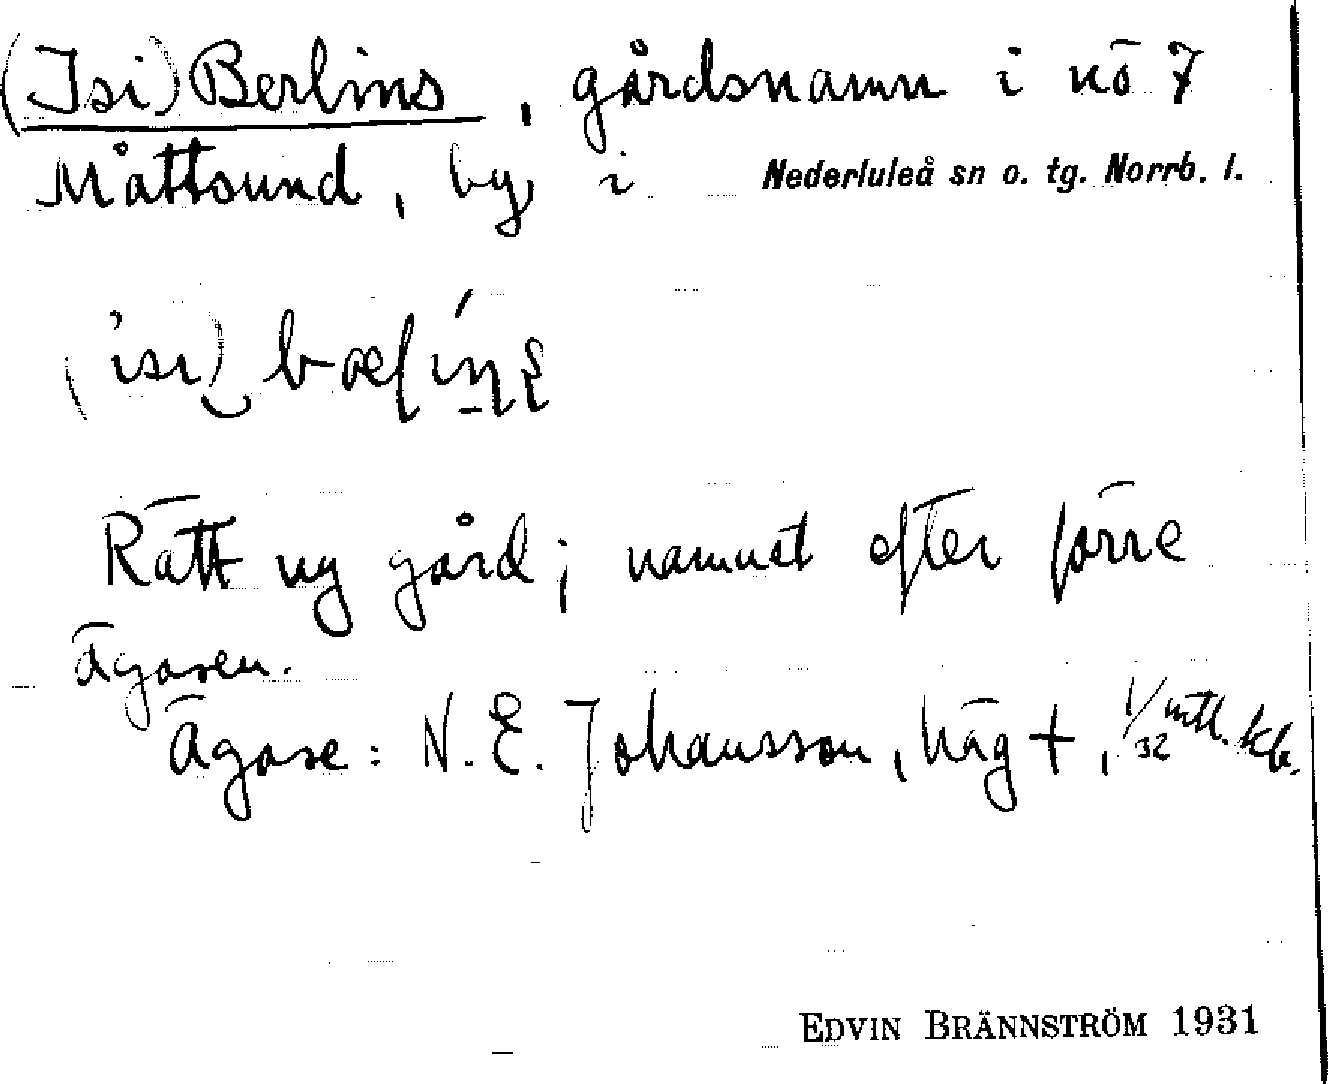 (Isi) Berlins, gårdsnamn i nö 7
Måttsund, by i Nederluleå sn o. tg. Norrb. l.
Rätt ny gård; namnet efter förre
ägaren.
Ägare: N. E. Johansson, häg +, 1/32 mtl. kr.
EDVIN BRÄNNSTRÖM 1931